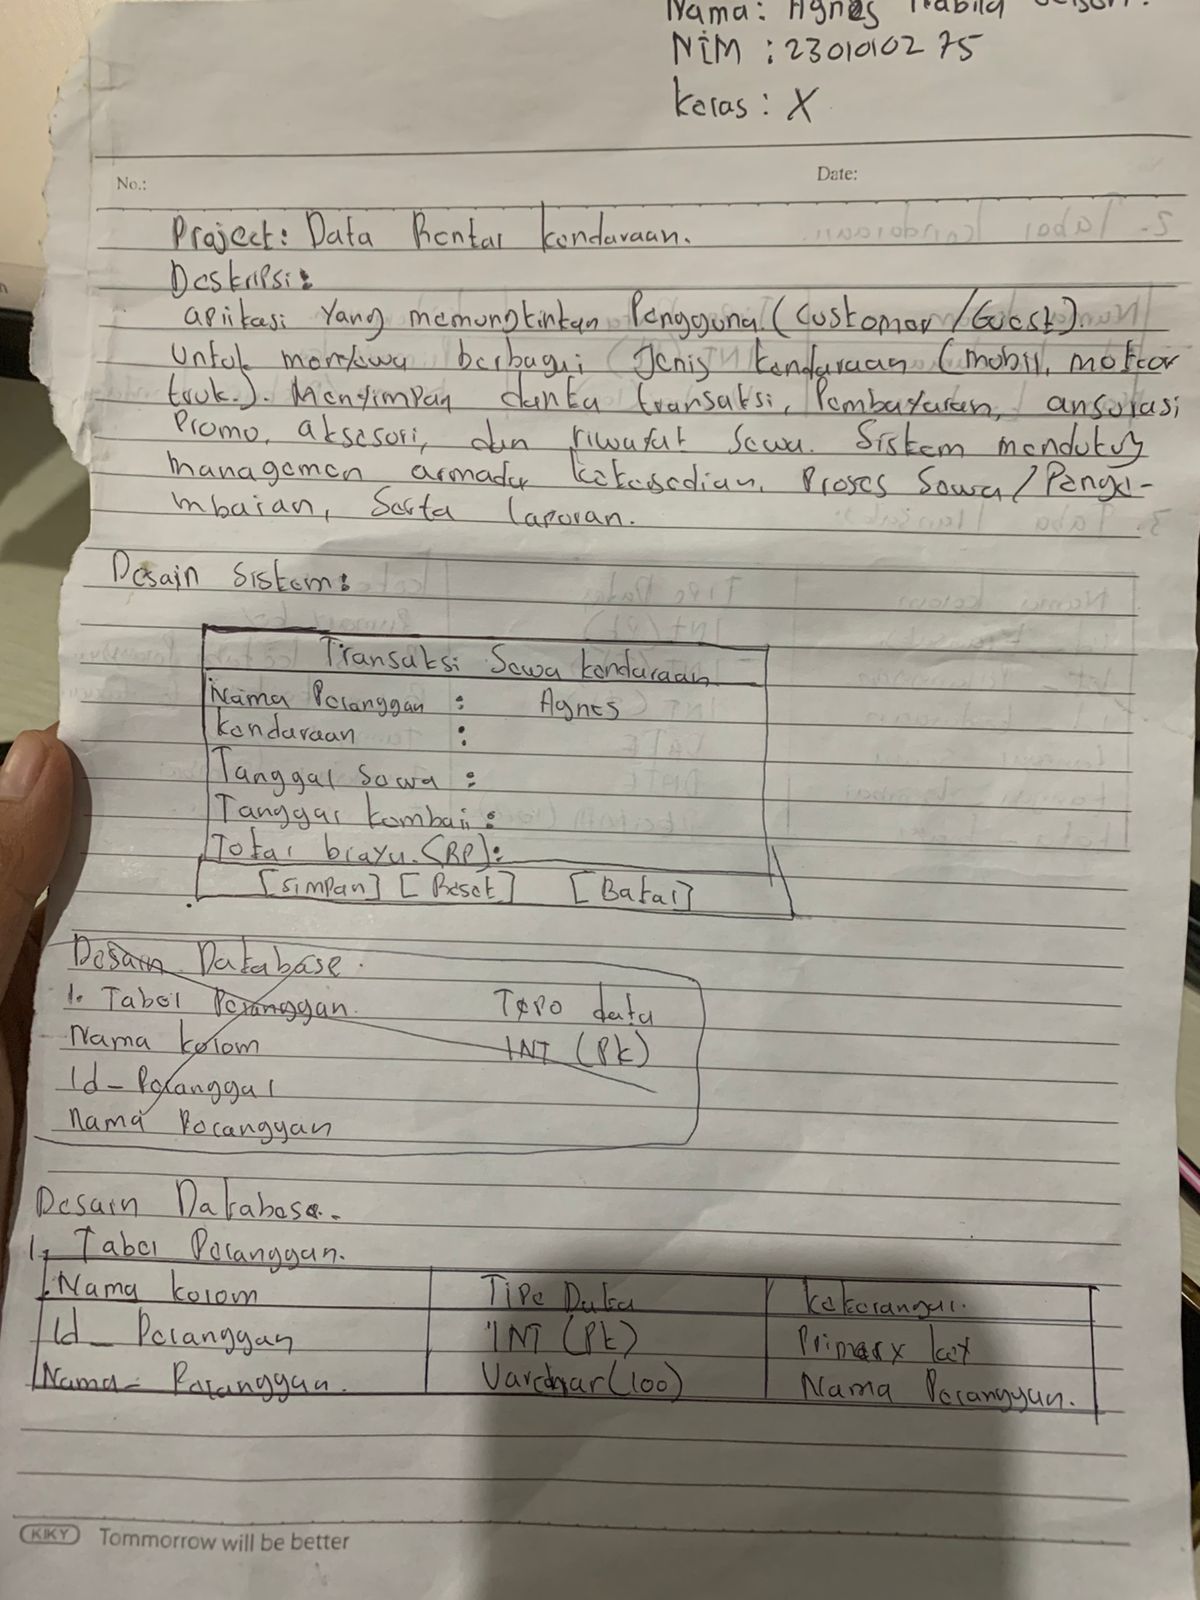 Nama: Agnes Nabila
NIM : 2301010275
Kelas : X
No.:
Date:
Project: Data Rental kendaraan.
Deskripsi:
aplikasi Yang memungkinkan Pengguna (Customer/Guest).
Untuk menyewa berbagai Jenis kendaraan (mobil, motor
truk.). Menyimpan danta transaksi, Pembayaran, ansurasi
Promo, aksesori, dan riwayat Sewa. Sistem mendukung
managemen armada ketesedian, Proses Sewa/Penge-
mbalan, Serta laporan.
Desain Sistem:
Transaksi Sewa kendaraan
Nama Pelanggan : Agnes
kendaraan :
Tanggal Sewa :
Tanggal kembali :
Total biaya (RP):
[Simpan] [Reset] [Batal]
Desain Database.
1. Tabel Pelanggan. Tepo data
Nama kolom INT (Pk)
Id_Pelanggal
Nama Pelanggan
Desain Database.
1. Tabel Pelanggan.
Nama kolom Tipe Data keterangan.
Id_Pelanggan INT (Pk) Primary key
Nama_Pelanggan. Varchar(100) Nama Pelanggan.
KIKY Tommorrow will be better